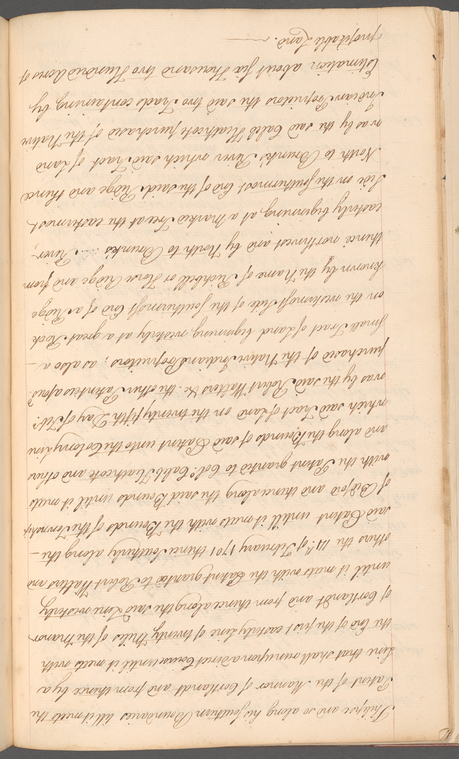 Philipse and so along his Southern Boundaries till it meets the
Patent of the Manner of Cortlandt and from thence by a
Line that shall run upon a Direct Course until it meets with
the End of the first easterly Line of twenty Miles of the Manor
of Cortlandt and from thence along the said Line westerly
until it meets with the Patent granted to Robert Walters and
others the 14th of February 1701 thence Easterly along the
said Patent untill it meets with the Bounds of the Township
of Bedford and thence along the said Bounds until it meets
with the Patent granted to Colo. Caleb Heathcote and others
and along the Bounds of said Patent unto the Colony Line
which said Tract of Land on the twenty fifth Day of
was by the said Robert Walters & the other Patentees
purchased of the Native Indian Proprietors; as also a
small Tract of Land beginning westerly at a great Rock
on the westermost Side of the Southermost End of a Ridge
known by the Name of Richbell or Horse Ridge and from
thence northwest and by North to Brunkis River,
easterly beginning at a Marked Tree at the eastermost
Side on the southermost End of the said Ridge and thence
North to Brunkis River which said Tract of Land
was by the said Caleb Heathcote purchased of the Native
Indian Proprietors the said two Tracts containing by
Estimation about six Thousand two Hundred Acres of
profitable Land.